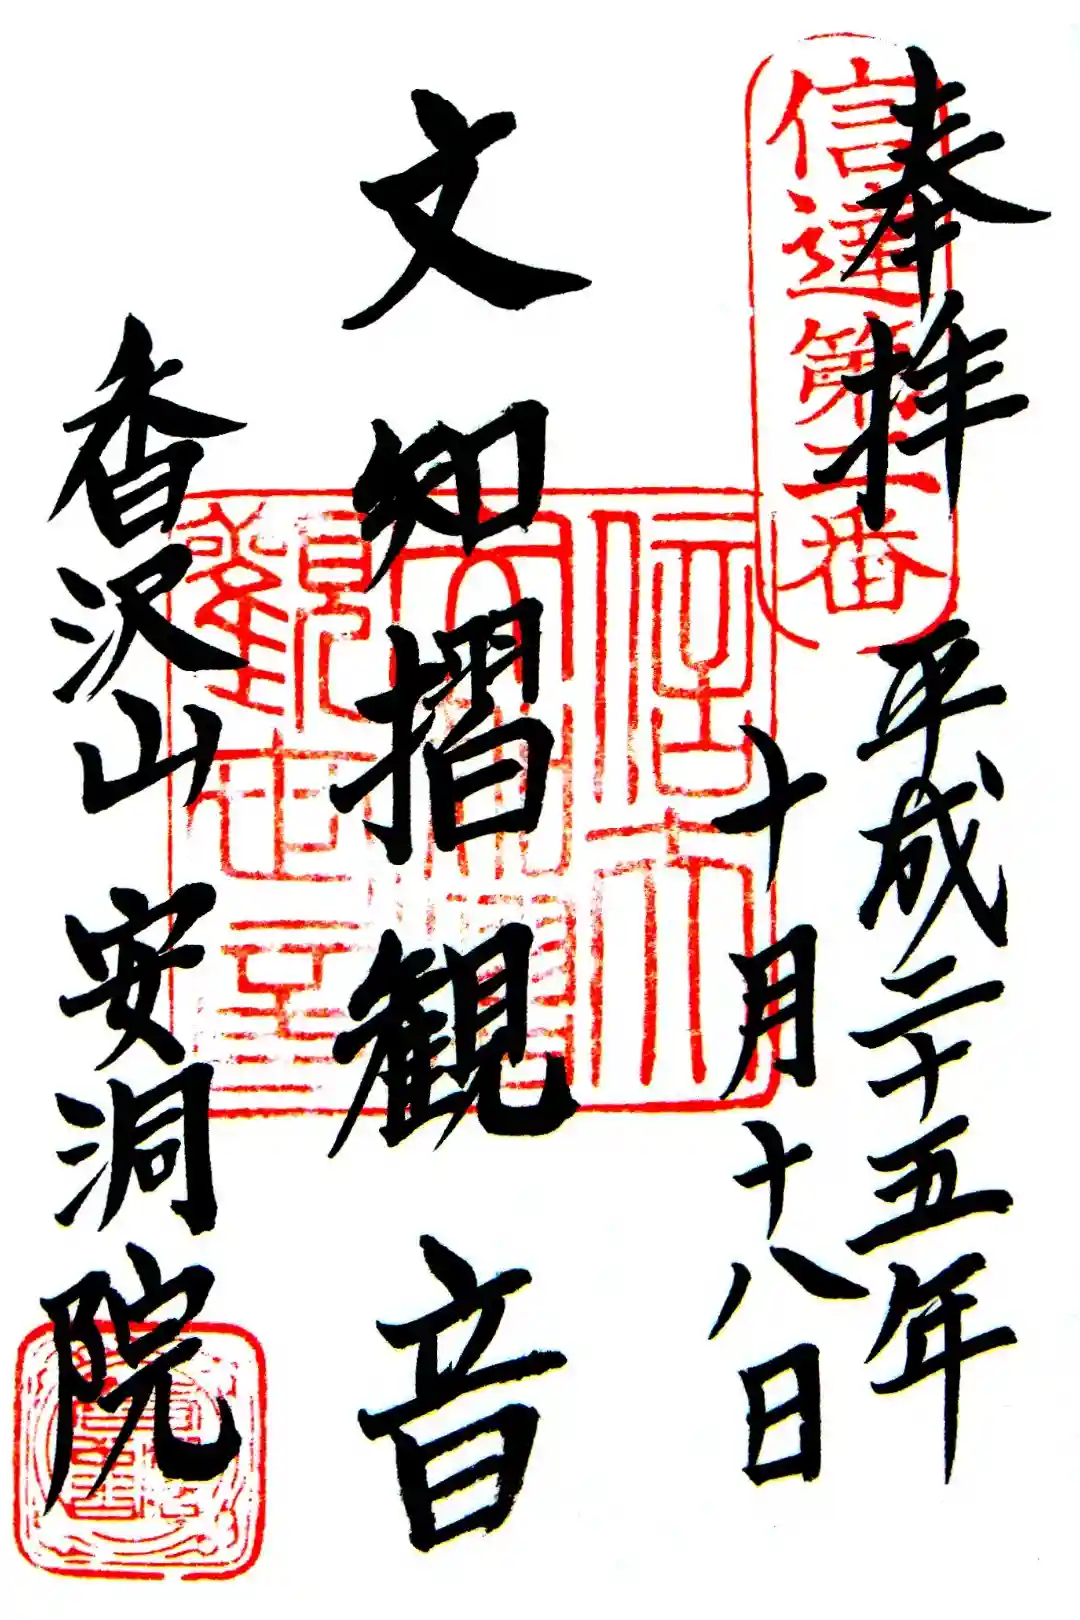 奉拝 平成二十五年
信達第二番
十月十八日
文知摺観音
信夫
觀世音
香沢山 安洞院